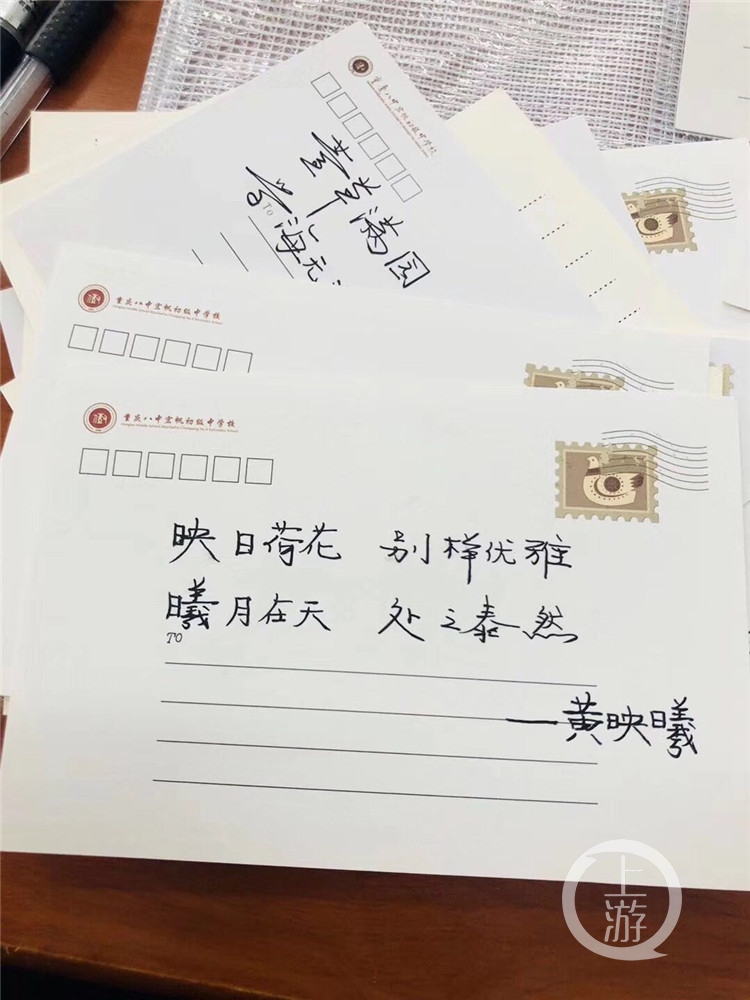 重庆八中宏帆初级中学校
萱草满园
海
重庆八中宏帆初级中学校
重庆八中宏帆初级中学校
映日荷花 别样优雅
曦月在天 处之泰然
TO
—黄映曦
上游